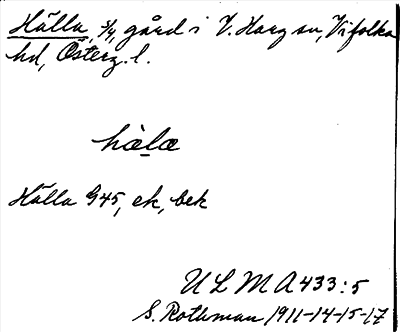 Hälla, 3/4, gård i V. Harg sn, Vifolka
hd, Österg. l.
hàlæ
Hälla G45, ek, bek
ULMA 433:5
S. Rothman 1911-14-15-17